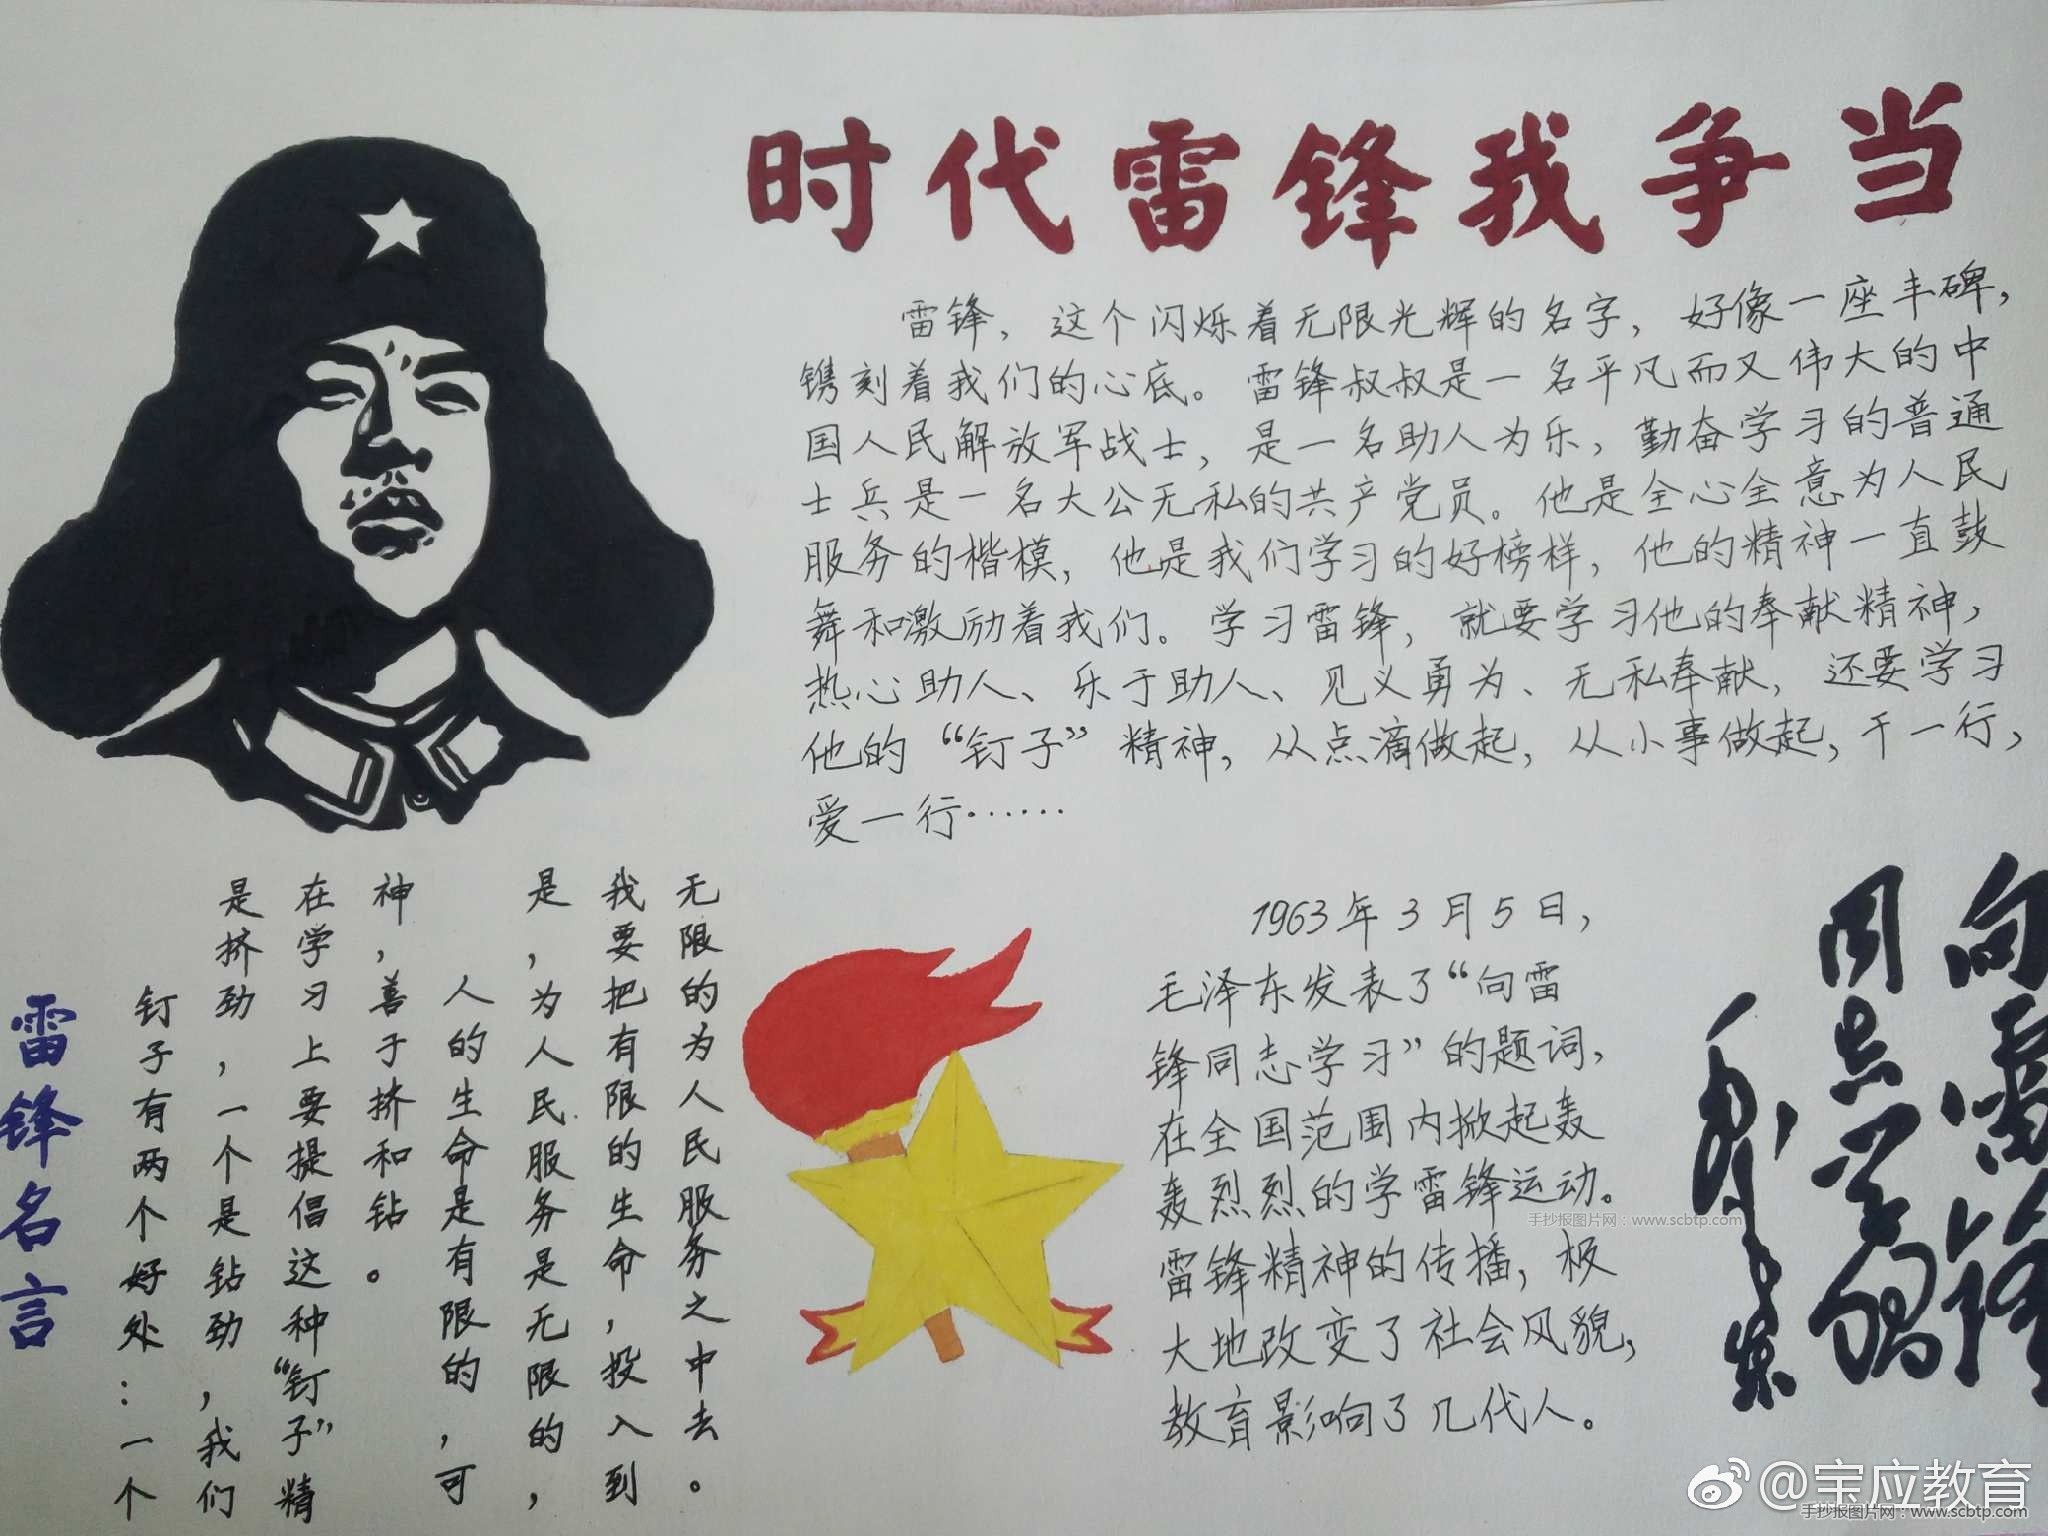 时代雷锋我争当
雷锋，这个闪烁着无限光辉的名字，好像一座丰碑，
镌刻着我们的心底。雷锋叔叔是一名平凡而又伟大的中
国人民解放军战士，是一名助人为乐，勤奋学习的普通
士兵是一名大公无私的共产党员。他是全心全意为人民
服务的楷模，他是我们学习的好榜样，他的精神一直鼓
舞和激励着我们。学习雷锋，就要学习他的奉献精神，
热心助人、乐于助人、见义勇为、无私奉献，还要学习
他的“钉子”精神，从点滴做起，从小事做起，干一行，
爱一行……
雷锋名言
钉子有两个好处：一个
是挤劲，一个是钻劲，我们
在学习上要提倡这种“钉子”精
神，善于挤和钻。
人的生命是有限的，可
是，为人民服务是无限的，
我要把有限的生命，投入到
无限的为人民服务之中去。
1963年3月5日，
毛泽东发表了“向雷
锋同志学习”的题词，
在全国范围内掀起轰
轰烈烈的学雷锋运动。
雷锋精神的传播，极
大地改变了社会风貌，
教育影响了几代人。
向雷锋
同志学习
毛泽东
手抄报图片网：www.scbtp.com
@宝应教育
手抄报图片网：www.scbtp.com